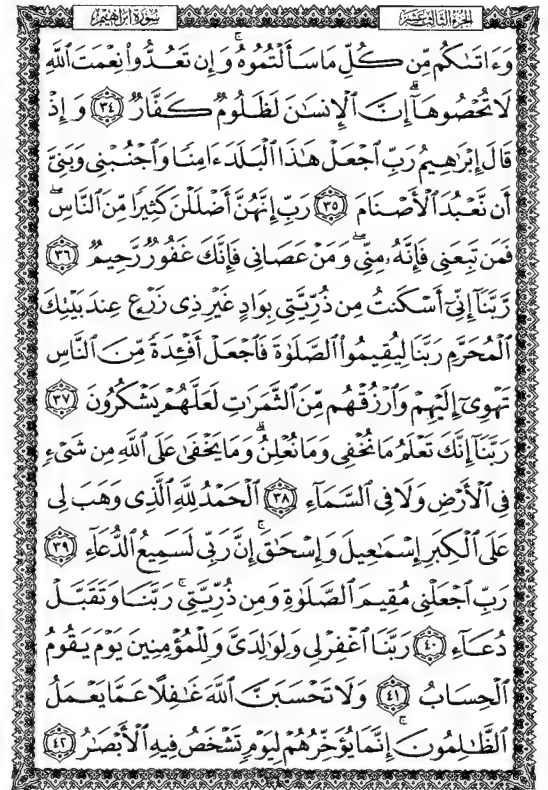 الجزء الثالث عشر سورة إبراهيم
وَءَاتَىٰكُم مِّن كُلِّ مَا سَأَلْتُمُوهُ ۚ وَإِن تَعُدُّوا۟ نِعْمَتَ ٱللَّهِ
لَا تُحْصُوهَآ ۗ إِنَّ ٱلْإِنسَـٰنَ لَظَلُومٌ كَفَّارٌ ٣٤ وَإِذْ
قَالَ إِبْرَٰهِيمُ رَبِّ ٱجْعَلْ هَـٰذَا ٱلْبَلَدَ ءَامِنًا وَٱجْنُبْنِى وَبَنِىَّ
أَن نَّعْبُدَ ٱلْأَصْنَامَ ٣٥ رَبِّ إِنَّهُنَّ أَضْلَلْنَ كَثِيرًا مِّنَ ٱلنَّاسِ ۖ
فَمَن تَبِعَنِى فَإِنَّهُۥ مِنِّى ۖ وَمَنْ عَصَانِى فَإِنَّكَ غَفُورٌ رَّحِيمٌ ٣٦
رَّبَّنَآ إِنِّىٓ أَسْكَنتُ مِن ذُرِّيَّتِى بِوَادٍ غَيْرِ ذِى زَرْعٍ عِندَ بَيْتِكَ
ٱلْمُحَرَّمِ رَبَّنَا لِيُقِيمُوا۟ ٱلصَّلَوٰةَ فَٱجْعَلْ أَفْـِٔدَةً مِّنَ ٱلنَّاسِ
تَهْوِىٓ إِلَيْهِمْ وَٱرْزُقْهُم مِّنَ ٱلثَّمَرَٰتِ لَعَلَّهُمْ يَشْكُرُونَ ٣٧
رَبَّنَآ إِنَّكَ تَعْلَمُ مَا نُخْفِى وَمَا نُعْلِنُ ۗ وَمَا يَخْفَىٰ عَلَى ٱللَّهِ مِن شَىْءٍ
فِى ٱلْأَرْضِ وَلَا فِى ٱلسَّمَآءِ ٣٨ ٱلْحَمْدُ لِلَّهِ ٱلَّذِى وَهَبَ لِى
عَلَى ٱلْكِبَرِ إِسْمَـٰعِيلَ وَإِسْحَـٰقَ ۚ إِنَّ رَبِّى لَسَمِيعُ ٱلدُّعَآءِ ٣٩
رَبِّ ٱجْعَلْنِى مُقِيمَ ٱلصَّلَوٰةِ وَمِن ذُرِّيَّتِى ۚ رَبَّنَا وَتَقَبَّلْ
دُعَآءِ ٤٠ رَبَّنَا ٱغْفِرْ لِى وَلِوَٰلِدَىَّ وَلِلْمُؤْمِنِينَ يَوْمَ يَقُومُ
ٱلْحِسَابُ ٤١ وَلَا تَحْسَبَنَّ ٱللَّهَ غَـٰفِلًا عَمَّا يَعْمَلُ
ٱلظَّـٰلِمُونَ ۚ إِنَّمَا يُؤَخِّرُهُمْ لِيَوْمٍ تَشْخَصُ فِيهِ ٱلْأَبْصَـٰرُ ٤٢